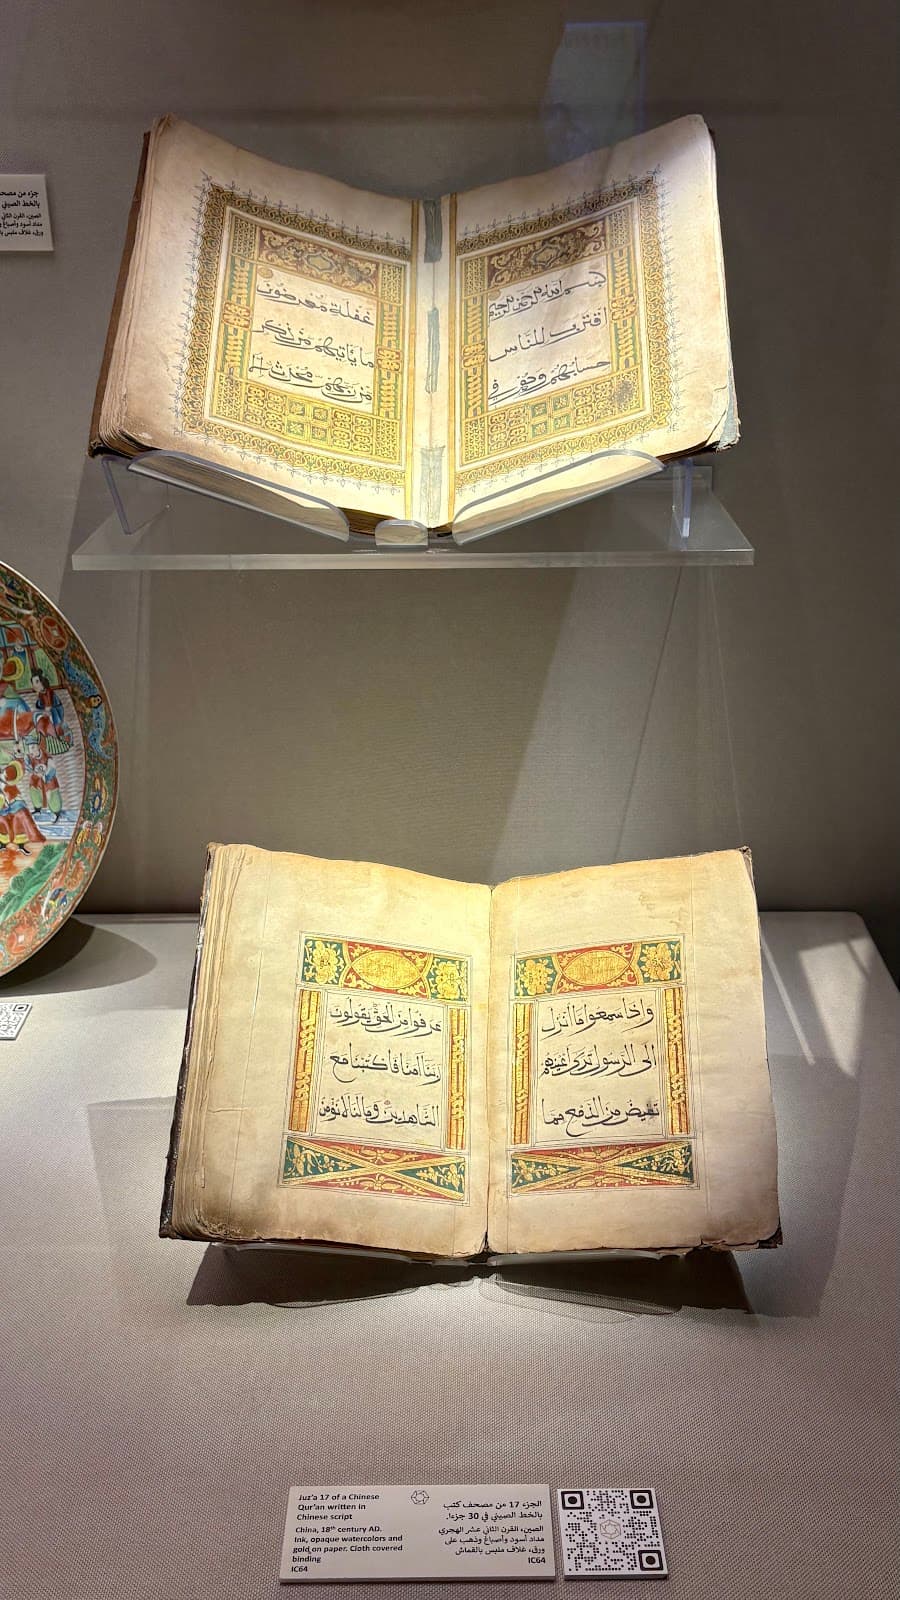 جزء من مصحف
بالخط الصيني
الصين، القرن الثاني
مداد أسود وأصباغ
ورق، غلاف ملبس
بسم الله الرحمن الرحيم
اقترب للناس
حسابهم وهم في
غفلة معرضون
ما ياتيهم من ذكر
من ربهم محدث الا
واذا سمعوا ما انزل
الى الرسول ترى اعينهم
تفيض من الدمع مما
عرفوا من الحق يقولون
ربنا آمنا فاكتبنا مع
الشاهدين وما لنا لا نؤمن
Juz'a 17 of a Chinese
Qur'an written in
Chinese script
China, 18th century AD.
Ink, opaque watercolors and
gold on paper. Cloth covered
binding
IC64
الجزء 17 من مصحف كتب
بالخط الصيني في 30 جزءا.
الصين، القرن الثاني عشر الهجري
مداد أسود وأصباغ وذهب على
ورق، غلاف ملبس بالقماش
IC64